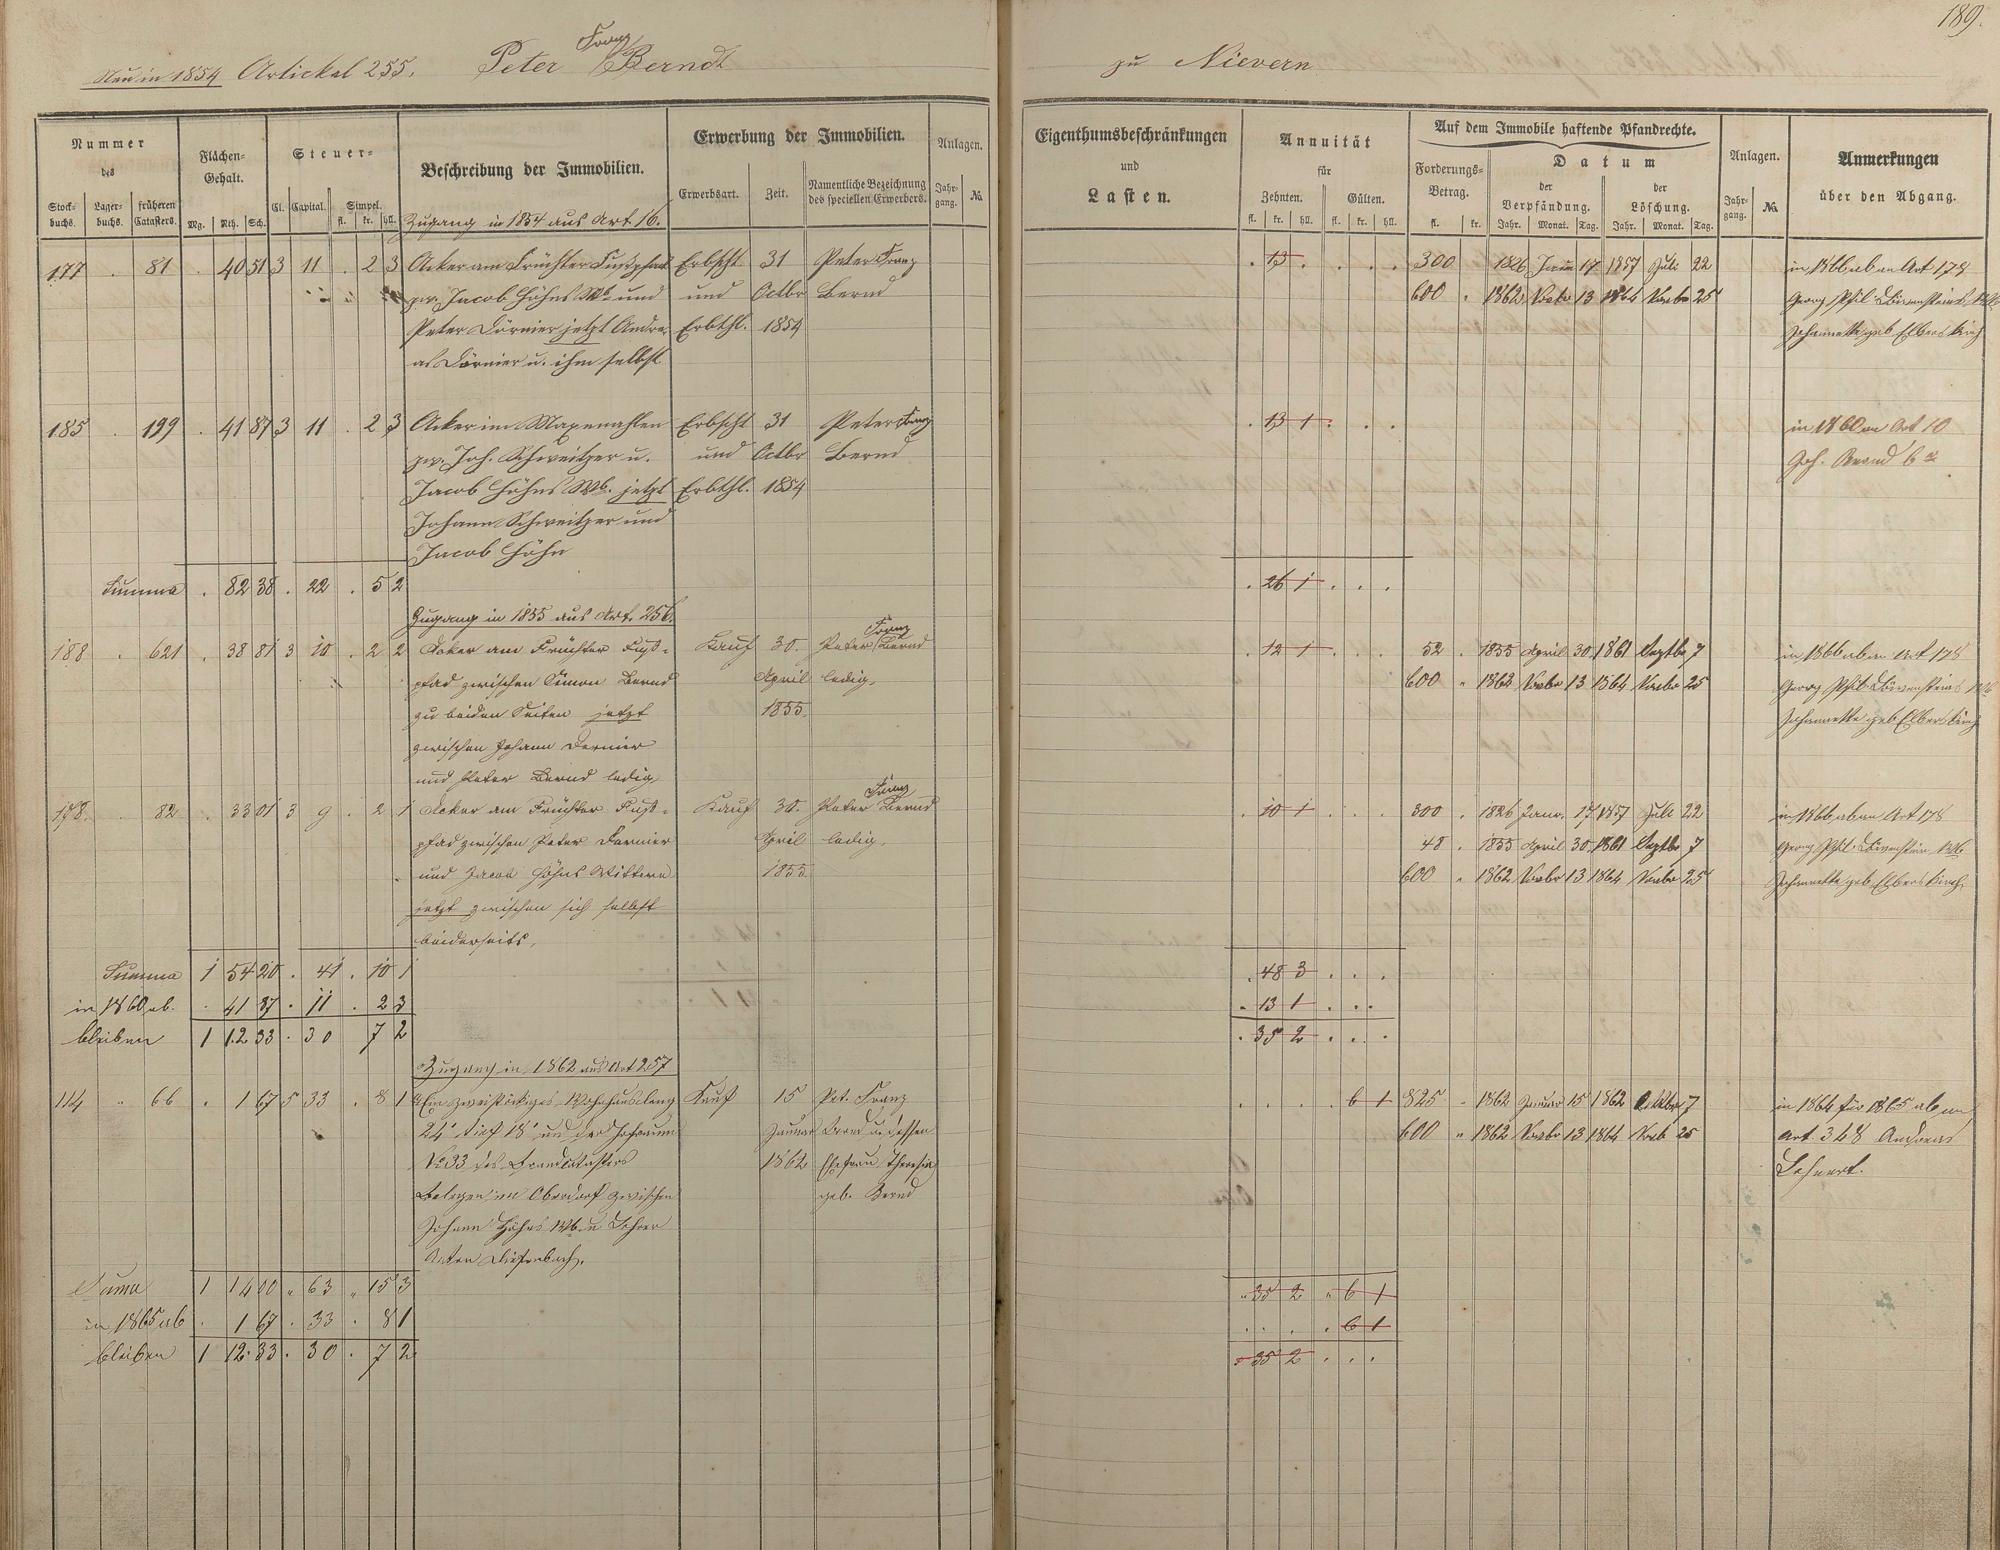 189.
Neu in 1854 Artickel 255. Peter Franz Berndt zu Nievern
Nummer des
Stockbuchs. Lagerbuchs. früheren Catasters.
Flächen-Gehalt.
Mg. Rth. Sch.
Steuer-
Cl. Capital. Simpel.
fl. kr. hll.
Beschreibung der Immobilien.
Erwerbung der Immobilien.
Erwerbsart. Zeit. Namentliche Bezeichnung des speciellen Erwerbers.
Anlagen.
Jahrgang. No.
Eigenthumsbeschränkungen
und
Lasten.
Annuität
für
Zehnten. Gülten.
fl. kr. hll. fl. kr. hll.
Auf dem Immobile haftende Pfandrechte.
Forderungs-Betrag.
fl. kr.
Datum
der Verpfändung. der Löschung.
Jahr. Monat. Tag. Jahr. Monat. Tag.
Anlagen.
Jahrgang. No.
Anmerkungen
über den Abgang.
Zugang in 1854 aus Art 16.
177 . 81 . 40 51 3 11 . 2 3 Acker am Früchter Fußpfad Erbscht 31 Peter Franz . 13 . . . . 300 1826 17 1857 Juli 22 in 1866 ab an Art 178
zw. Jacob Höhns Wb und und Octbr Bernd 600 . 1862 Novbr 13 1864 Novbr 25 Georg Phil. Löwensteins Wb
Peter Dörnier jetzt Andre- Erbthl. 1854 Johannette geb Elberskirch
as Dörnier u. ihm selbst
185 . 199 . 41 87 3 11 . 2 3 Acker im Maxemahlen Erbscht 31 Peter Franz . 13 1 . . . in 1860 an Art 10
zw. Joh. Schweitzer u. und Octbr Bernd Joh.
Jacob Höhns Wb. jetzt Erbthl. 1854
Johann Schweitzer und
Jacob Höhn
Summa . 82 38 . 22 . 5 2 . 26 1 . . .
Zugang in 1855 aus Art. 256.
188 . 621 . 38 81 3 10 . 2 2 Acker am Früchter Fuß- Kauf 30. Peter Franz Bernd . 12 1 . . . 52 . 1855 April 30 1861 Septbr 7 in 1866 ab an Art 178
pfad zwischen Simon Bernd April ledig. 600 " 1862 Novbr 13 1864 Novbr 25 Georg Phil. Löwensteins Wb
zu beiden Seiten jetzt 1855. Johannette geb Elberskirch
zwischen Johann Dernier
und Peter Bernd ledig
178. . 82 . 33 01 3 9 . 2 1 Acker am Früchter Fuß- Kauf 30. Peter Franz Bernd . 10 1 . . . 300 . 1826 Janr. 17 1857 Juli 22 in 1866 ab an Art 178
pfad zwischen Peter Dernier April ledig. 48 . 1855 April 30 1861 Septbr 7 Georg Phil. Löwenstein Wb
und Jacob Höhns Wittwe 1855 600 " 1862 Novbr 13 1864 Novbr 25 Johannette geb Elberskirch
jetzt zwischen sich selbst
beiderseits.
Summa 1 54 20 . 41 . 10 1 . 48 3 . . .
in 1860 ab. . 41 87 . 11 . 2 3 . 13 1 . . .
bleiben 1 12 33 . 30 7 2 . 35 2 . . .
Zugang in 1862 aus Art 257
114 " 66 . 1 67 5 33 . 8 1 Ein zweistöckiges Wohnhaus lang Kauf 15 Pet. Franz . . . . 6 1 825 - 1862 Januar 15 1862 Oktbr 7 in 1864 für 1865 ab an
24' tief 18' und der Hofraum Januar Bernd u. dessen 600 " 1862 Novbr 13 1864 Novb 25 Art. 348 Andreas
No 33 des Brandcatasters 1862 Ehefrau Theresia Lehnert.
belegen im Oberdorf zwischen geb. Bernd
Johann Höhns Wb. u Lehrer
Anton Diefenbach.
Suma 1 14 00 " 63 " 15 3 " 35 2 " 6 1
in 1865 ab . 1 67 . 33 . 8 1 . . . . 6 1
bleiben 1 12 33 . 30 . 7 2 . 35 2 . . .